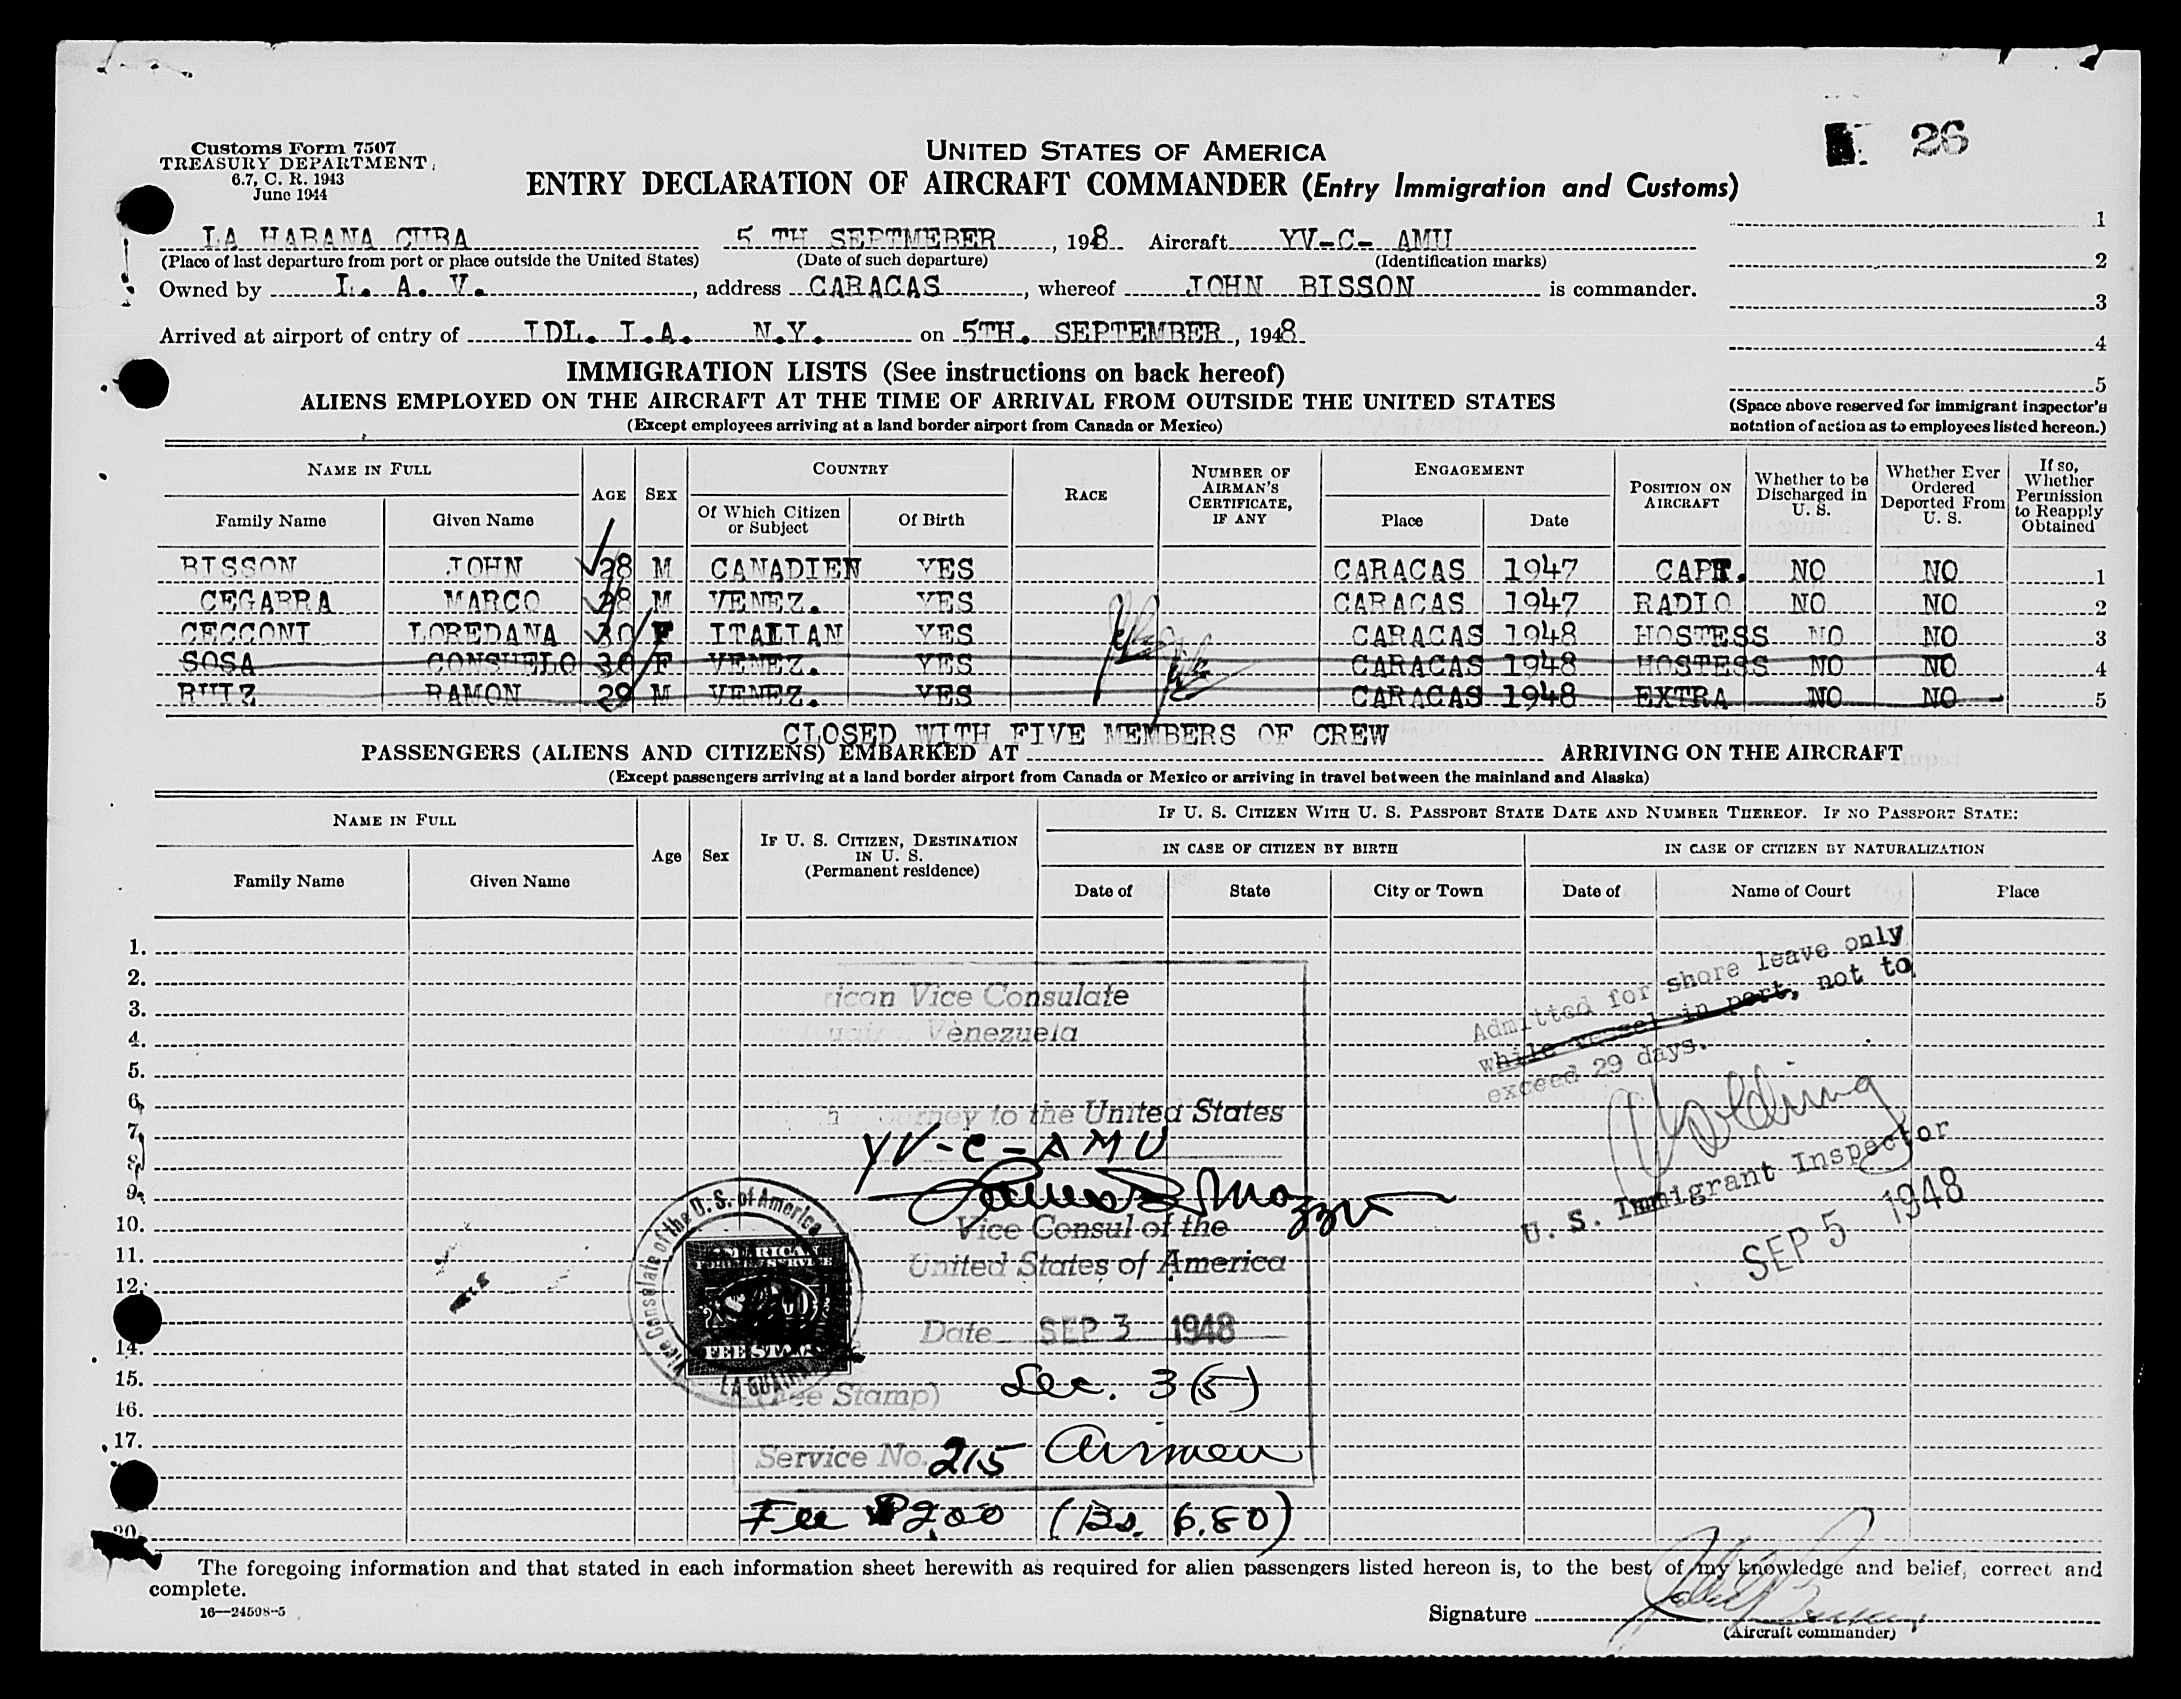 26
Customs Form 7507
TREASURY DEPARTMENT
6.7, C. R. 1943
June 1944
UNITED STATES OF AMERICA
ENTRY DECLARATION OF AIRCRAFT COMMANDER (Entry Immigration and Customs)
LA HABANA CUBA 5 TH SEPTMEBER, 1948 Aircraft YV-C- AMU
(Place of last departure from port or place outside the United States) (Date of such departure) (Identification marks)
Owned by L. A. V., address CARACAS, whereof JOHN BISSON is commander.
Arrived at airport of entry of IDL. I.A. N.Y. on 5TH. SEPTEMBER, 1948
1
2
3
4
5
(Space above reserved for immigrant inspector's
notation of action as to employees listed hereon.)
IMMIGRATION LISTS (See instructions on back hereof)
ALIENS EMPLOYED ON THE AIRCRAFT AT THE TIME OF ARRIVAL FROM OUTSIDE THE UNITED STATES
(Except employees arriving at a land border airport from Canada or Mexico)
NAME IN FULL AGE SEX COUNTRY RACE NUMBER OF AIRMAN'S CERTIFICATE, IF ANY ENGAGEMENT POSITION ON AIRCRAFT Whether to be Discharged in U. S. Whether Ever Ordered Deported From U. S. If so, Whether Permission to Reapply Obtained
Family Name Given Name Of Which Citizen or Subject Of Birth Place Date
BISSON JOHN 28 M CANADIEN YES CARACAS 1947 CAPT. NO NO 1
CEGARRA MARCO 28 M VENEZ. YES CARACAS 1947 RADIO NO NO 2
CECCONI LOREDANA 30 F ITALIAN YES CARACAS 1948 HOSTESS NO NO 3
SOSA CONSUELO 30 F VENEZ. YES CARACAS 1948 HOSTESS NO NO 4
RUIZ RAMON 29 M VENEZ. YES CARACAS 1948 EXTRA NO NO 5
CLOSED WITH FIVE MEMBERS OF CREW
PASSENGERS (ALIENS AND CITIZENS) EMBARKED AT ARRIVING ON THE AIRCRAFT
(Except passengers arriving at a land border airport from Canada or Mexico or arriving in travel between the mainland and Alaska)
NAME IN FULL Age Sex IF U. S. CITIZEN, DESTINATION IN U. S. (Permanent residence) IF U. S. CITIZEN WITH U. S. PASSPORT STATE DATE AND NUMBER THEREOF. IF NO PASSPORT STATE:
IN CASE OF CITIZEN BY BIRTH IN CASE OF CITIZEN BY NATURALIZATION
Family Name Given Name Date of State City or Town Date of Name of Court Place
1.
2.
3.
4.
5.
6.
7.
8.
9.
10.
11.
12.
14.
15.
16.
17.
20.
ican Vice Consulate
Venezuela
to the United States
YV-C-AMU
Vice Consul of the
United States of America
Date SEP 3 1948
Vice Consulate of the U. S. of America
LA GUAIRA
AMERICAN
FOREIGN SERVICE
FEE STAMP
(Fee Stamp) Sec. 3(5)
Service No. 215 Airmen
Fee $2.00 (Bs. 6.80)
Admitted for shore leave only
while vessel in port, not to
exceed 29 days.
U. S. Immigrant Inspector
SEP 5 1948
The foregoing information and that stated in each information sheet herewith as required for alien passengers listed hereon is, to the best of my knowledge and belief, correct and
complete.
16—24598-5
Signature
(Aircraft commander)